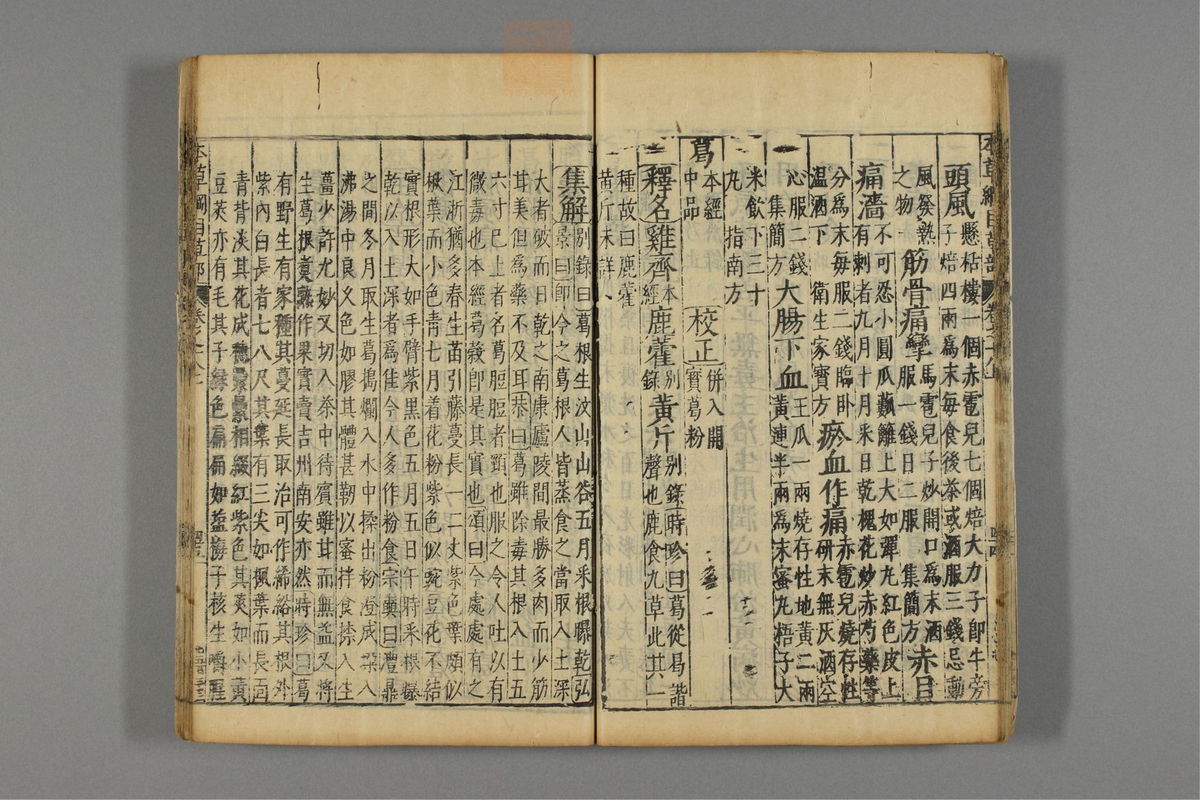 頭風懸栝樓一個赤雹兒七個焙大力子即牛旁
子焙四兩爲末每食後茶或酒服三錢忌動
風發熱之物筋骨痛攣馬雹兒子炒開口爲末酒
服一錢日二服集簡方赤目
痛濇不可忍小圓瓜蔞籬上大如彈丸紅色皮上
有刺者九月十月采日乾槐花炒赤芍藥等
分爲末每服二錢臨卧温酒下衛生家寶方瘀血作痛赤雹兒燒存性
研末無灰酒空
心服二錢集簡方大腸下血王瓜一兩燒存性地黃二兩
黃連半兩爲末蜜丸梧子大
米飲下三十丸指南方
葛本經中品
校正併入開寶葛粉
釋名雞齊本經鹿藿别錄黃斤别錄時珍曰葛從曷諧
聲也鹿食九草此其一
種故曰鹿藿
黃斤未詳
集解别錄曰葛根生汶山山谷五月采根曝乾弘
景曰即今之葛根人皆蒸食之當取入土深
大者破而日乾之南康廬陵間最勝多肉而少筋
甘美但爲藥不及耳恭曰葛雖除毒其根入土五
六寸已上者名葛脰脰者頸也服之令人吐以有
微毒也本經葛穀即是其實也頌曰今處處有之
江浙猶多春生苗引藤蔓長一二丈紫色葉頗似
楸葉而小色青七月着花粉紫色似豌豆花不結
實根形大如手臂紫黑色五月五日午時采根曝
乾以入土深者爲佳今人多作粉食宗奭曰澧鼎
之間冬月取生葛搗爛入水中揉出粉澄成垛入
沸湯中良久色如膠其體甚韌以蜜拌食捺入生
薑少許尤妙又切入茶中待賓雖甘而無益又將
生葛根煮熟作果實賣吉州南安亦然時珍曰葛
有野生有家種其蔓延長取治可作絺綌其根外
紫內白長者七八尺其葉有三尖如楓葉而長面
青背淡其花成穗纍纍相綴紅紫色其莢如小黃
豆莢亦有毛其子綠色扁扁如鹽梅子核生嚼腥